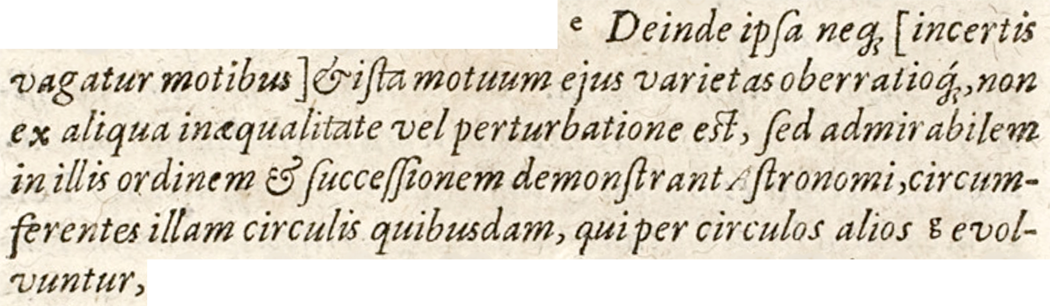 e Deinde ipſa neq; [incertis
vagatur motibus] & iſta motuum ejus varietas oberratioq́;, non
ex aliqua inæqualitate vel perturbatione est, ſed admirabilem
in illis ordinem & ſucceſſionem demonſtrant Aſtronomi, circum-
ferentes illam circulis quibusdam, qui per circulos alios g evol-
vuntur,